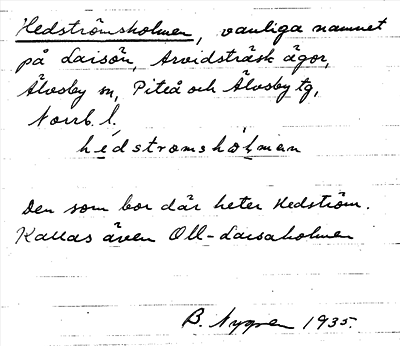 Hedströmsholmen, vanliga namnet
på Laisön, Arvidsträsk ägor,
Älvsby sn, Piteå och Älvsby tg,
Norrb. l.
hedstromshólman
Den som bor där heter Hedström.
Kallas även Oll-Laisaholmen
B. Nygren 1935.